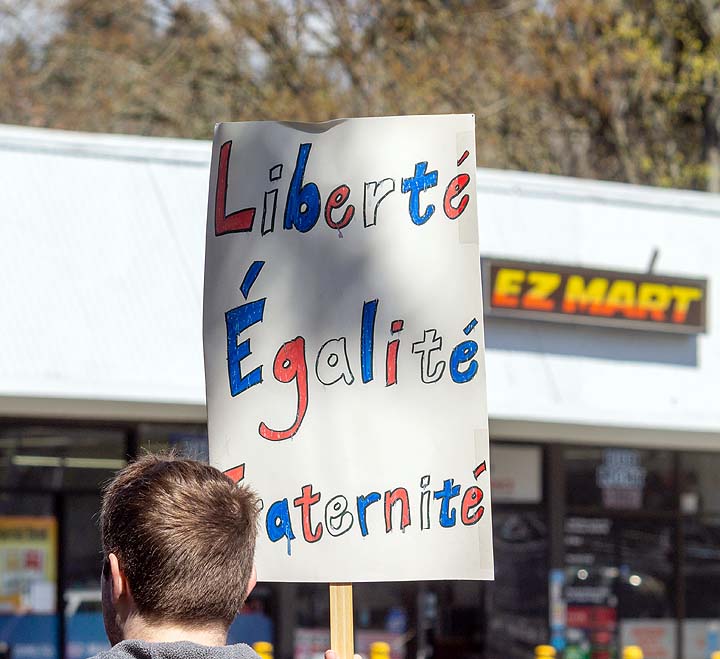 Liberté
Égalité
Fraternité
EZ MART